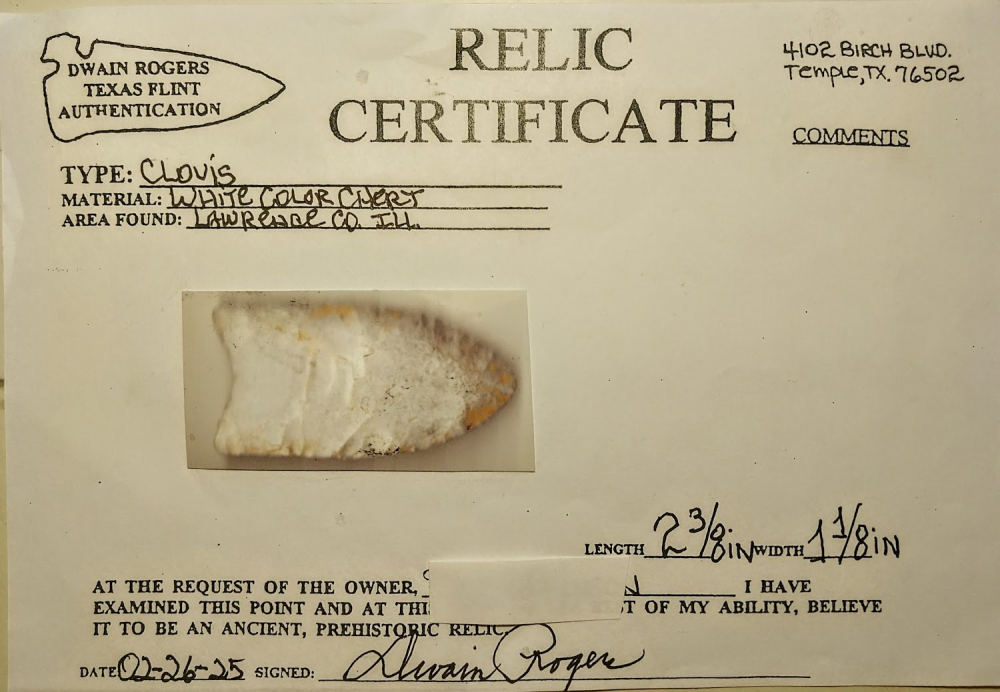 DWAIN ROGERS
TEXAS FLINT
AUTHENTICATION
RELIC
CERTIFICATE
4102 BIRCH BLVD.
Temple, TX. 76502
COMMENTS
TYPE: CLOVIS
MATERIAL: WHITE COLOR CHERT
AREA FOUND: LAWRENCE CO. ILL.
LENGTH 2 3/8 IN WIDTH 1 1/8 IN
AT THE REQUEST OF THE OWNER, I HAVE
EXAMINED THIS POINT AND AT OF MY ABILITY, BELIEVE
IT TO BE AN ANCIENT, PREHISTORIC RELIC
DATE 02-26-25 SIGNED: Dwain Rogers